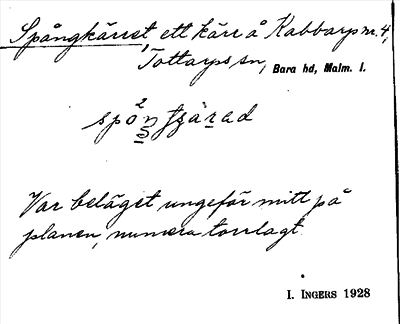 Spångkärret ett kärr å Kabbarp nr. 4,
Tottarps sn, Bara hd, Malm. l.
Var beläget ungefär mitt på
planen, numera torrlagt.
I. INGERS 1928